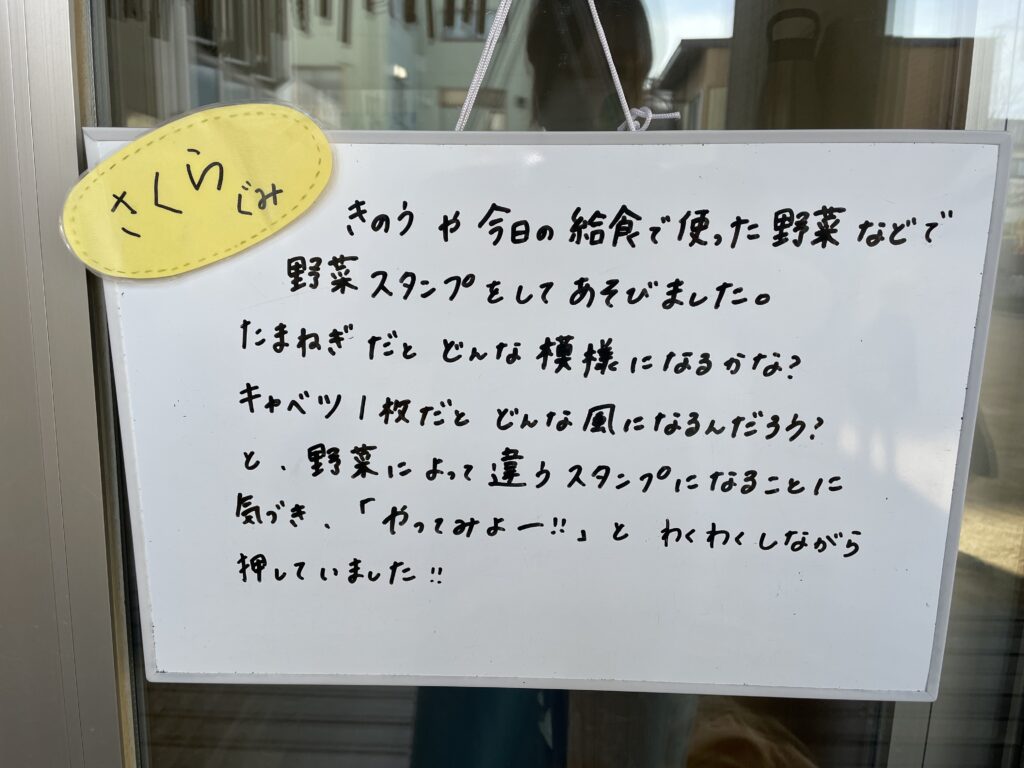 さくらぐみ
きのうや今日の給食で使った野菜などで
野菜スタンプをしてあそびました。
たまねぎだとどんな模様になるかな?
キャベツ1枚だとどんな風になるんだろう?
と、野菜によって違うスタンプになることに
気づき、「やってみよー!!」とわくわくしながら
押していました!!